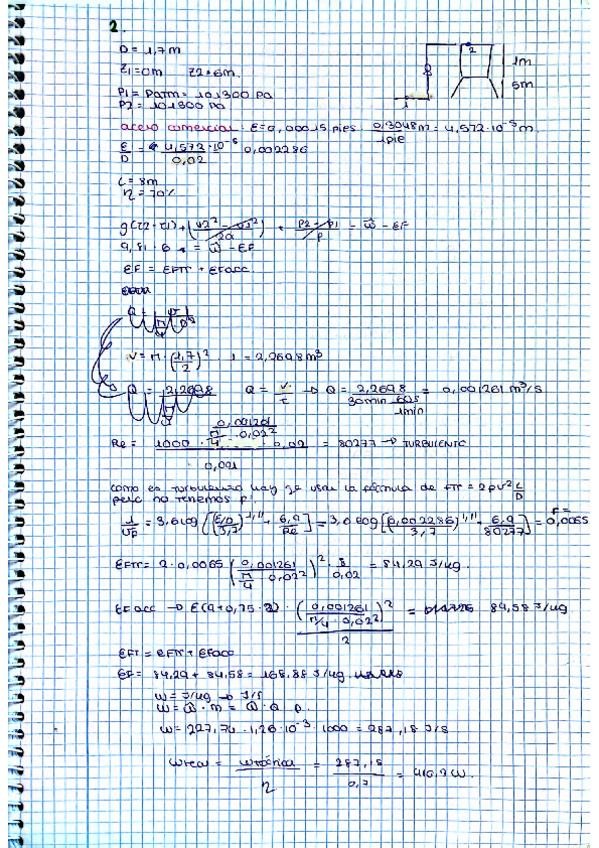 2.
D = 1,7m
Z1 = 0m Z2 = 6m.
P1 = Patm = 101300 Pa
P2 = 101300 Pa
2
1m
5m
1
acero comercial: E = 0,00015 pies · 0,3048m / 1pie = 4,572·10⁻⁵ m
E/D = 4,572·10⁻⁵ / 0,02 0,002286
L = 8m
η = 70%
g(z2-z1) + (v2² - v1²)/2α + (P2-P1)/ρ = Ŵ - EF
9,81 · 6 = Ŵ - EF
EF = EFtr + EFacc
V = π · (1,7/2)² · 1 = 2,2698 m³
Q = 2,2698 Q = V/t → Q = 2,2698 / 30min 60s/1min = 0,001261 m³/s
Re = 1000 · 0,001261/(π/4 · 0,02²) · 0,02 / 0,001 = 80277 → TURBULENTO
como es turbulento hay que usar la fórmula de ftr = 2ρv² L/D
pero no tenemos f:
1/√f = 3,6 log [(E/D / 3,7)^1,11 + 6,9/Re] = 3,6 log [(0,002286/3,7)^1,11 + 6,9/80277] = f = 0,0065
EFtr = 2 · 0,0065 (0,001261 / π/4 0,02²)² · 8/0,02 = 84,29 J/kg.
EFacc → E(9+0,75·2) · (0,001261 / π/4 · 0,02²)² / 2 = 84,58 J/kg
EFT = EFtr + EFacc
EF = 84,29 + 84,58 = 168,88 J/kg
W = J/kg → J/s
W = Ŵ · m = Ŵ · Q ρ.
W = 227,74 · 1,26·10⁻³ · 1000 = 287,18 J/s
Wreal = Wteórica / η = 287,18 / 0,7 = 410,2 W.